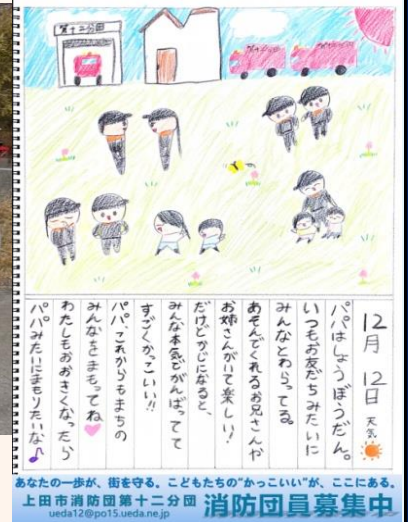 第十二分団
12月12日 天気
パパはしょうぼうだん。
いつもお友だちみたいに
みんなとわらってる。
あそんでくれるお兄さんや
お姉さんがいて楽しい！
だけどかじになると、
みんな本気でがんばってて
すごくかっこいい！！
パパ、これからもまちの
みんなをまもってね
わたしもおおきくなったら
パパみたいにまもりたいな♪
あなたの一歩が、街を守る。こどもたちの“かっこいい”が、ここにある。
上田市消防団第十二分団
ueda12@po15.ueda.ne.jp
消防団員募集中